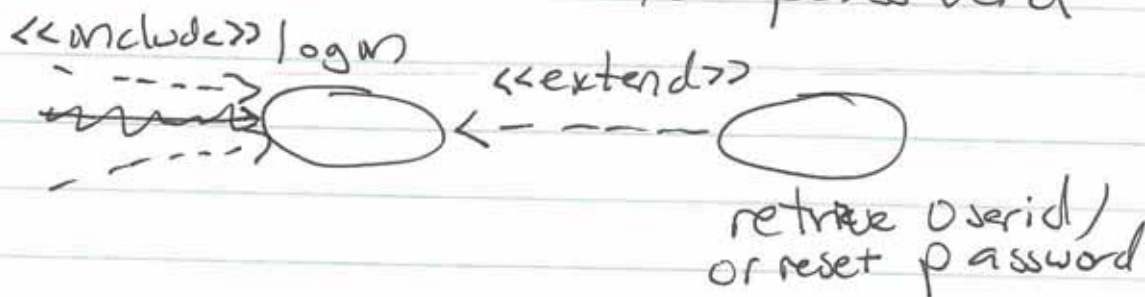 password
<<include>> login
<<extend>>
retrieve userid/
or reset password